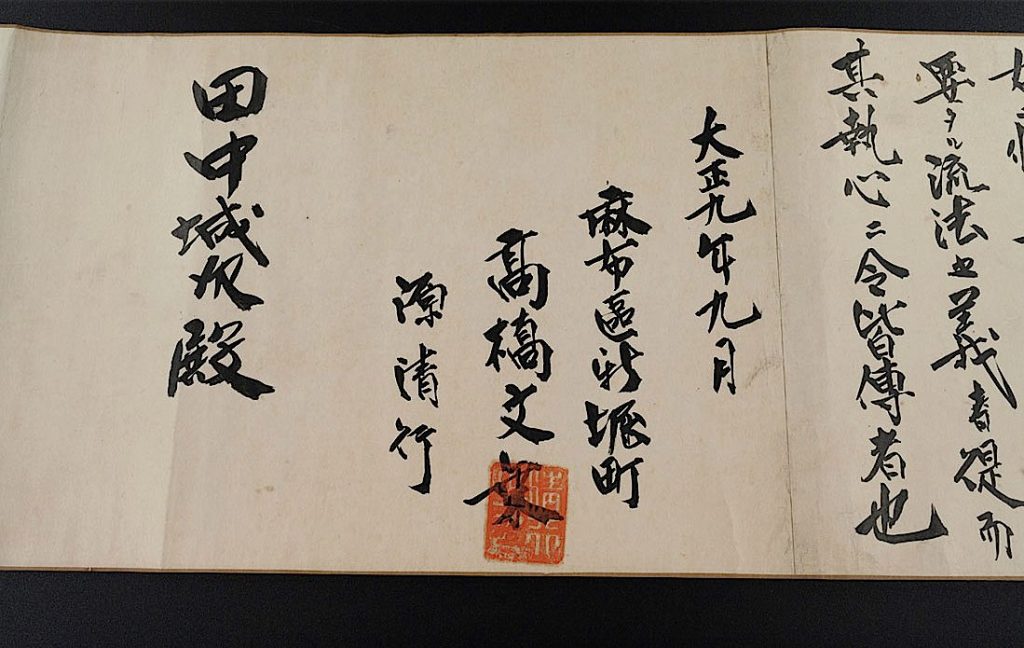 要タル流法也義者從而
其執心ニ令皆傳者也
大正九年九月
麻布區新堀町
髙橋文
源清行
田中城次殿